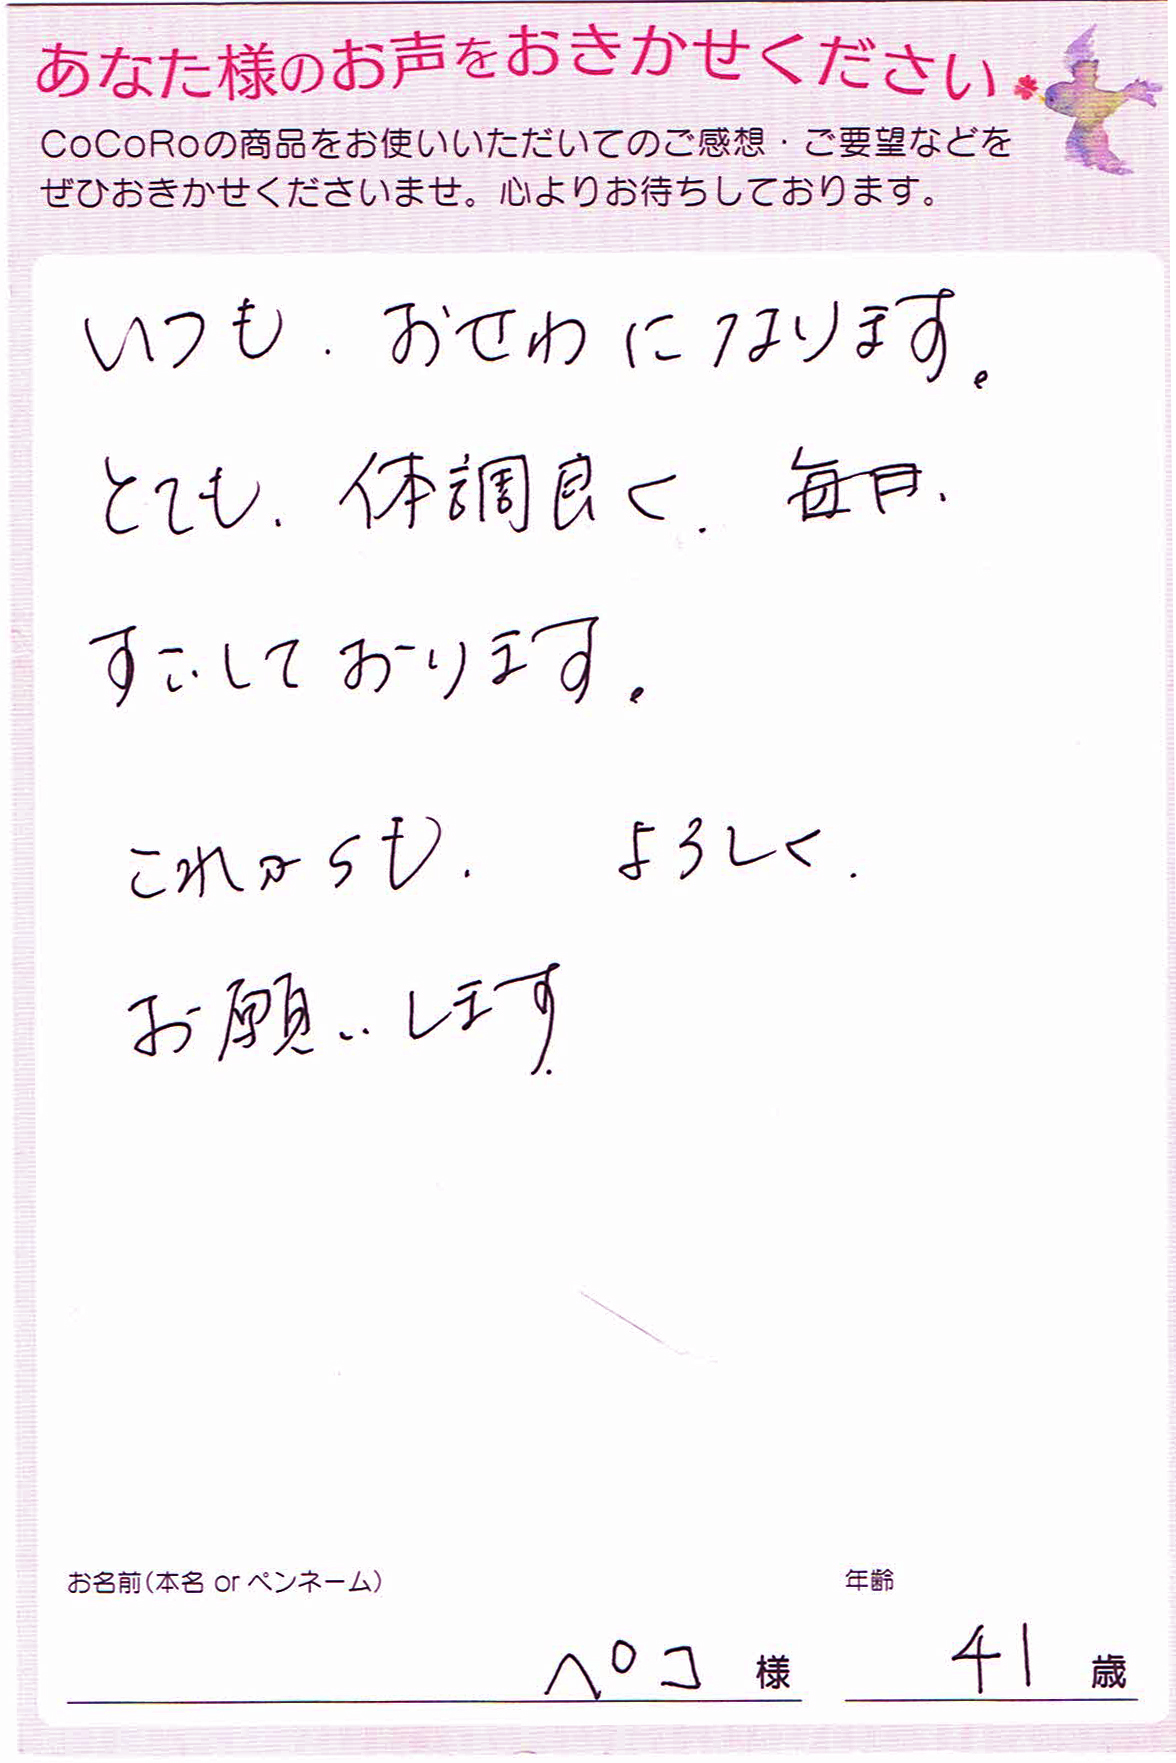 あなた様のお声をおきかせください
CoCoRoの商品をお使いいただいてのご感想・ご要望などを
ぜひおきかせくださいませ。心よりお待ちしております。
いつも、おせわになります。
とても、体調良く、毎日、
すごしております。
これからも、よろしく、
お願いします
お名前(本名 or ペンネーム)
年齢
ペコ 様
41 歳